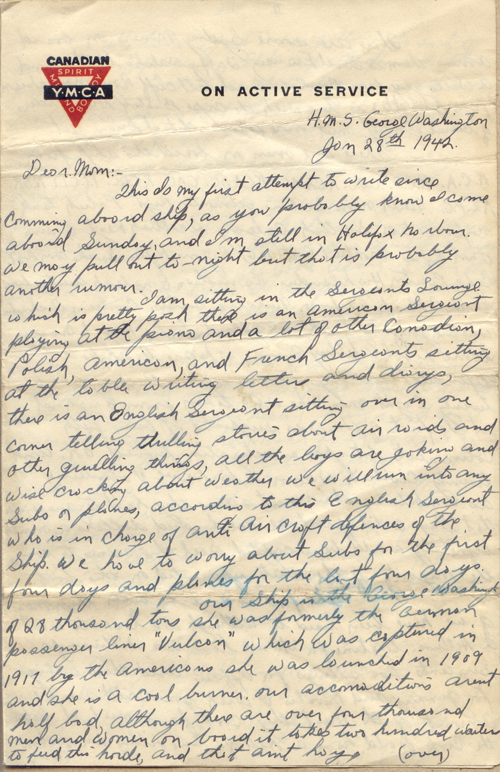 CANADIAN
SPIRIT
Y·M·C·A
MIND BODY
ON ACTIVE SERVICE
H.M.S. George Washington
Jan 28th 1942.
Dear Mom:-
This is my first attempt to write since
comming aboard ship, as you probably know I come
aboard Sunday, and I'm still in Halifax harbour.
we may pull out to-night but that is probably
another rumour.
I am sitting in the Sergeants Lounge
which is pretty posh there is an American Sergeant
playing at the piano and a lot of other Canadian,
Polish, American, and French Sergeants sitting
at the table writing letters and diarys,
there is an English Sergeant sitting over in one
corner telling thrilling stories about air raids and
other gruelling things, all the boys are joking and
wise cracking about weather we will run into any
Subs or planes, according to this English Sergeant
who is in charge of anti Air craft defences of the
Ship. We have to worry about Subs for the first
four days and planes for the last four days.
our Ship is the George Washington
of 28 thousand tons she was formerly the German
passenger liner "Vulcan" which was captured in
1917 by the Americans she was launched in 1909
and she is a coal burner. our accomaditions arent
half bad, although there are over four thousand
men and women on board it takes two hundred waiters
to feed this horde, and that aint hay (over)